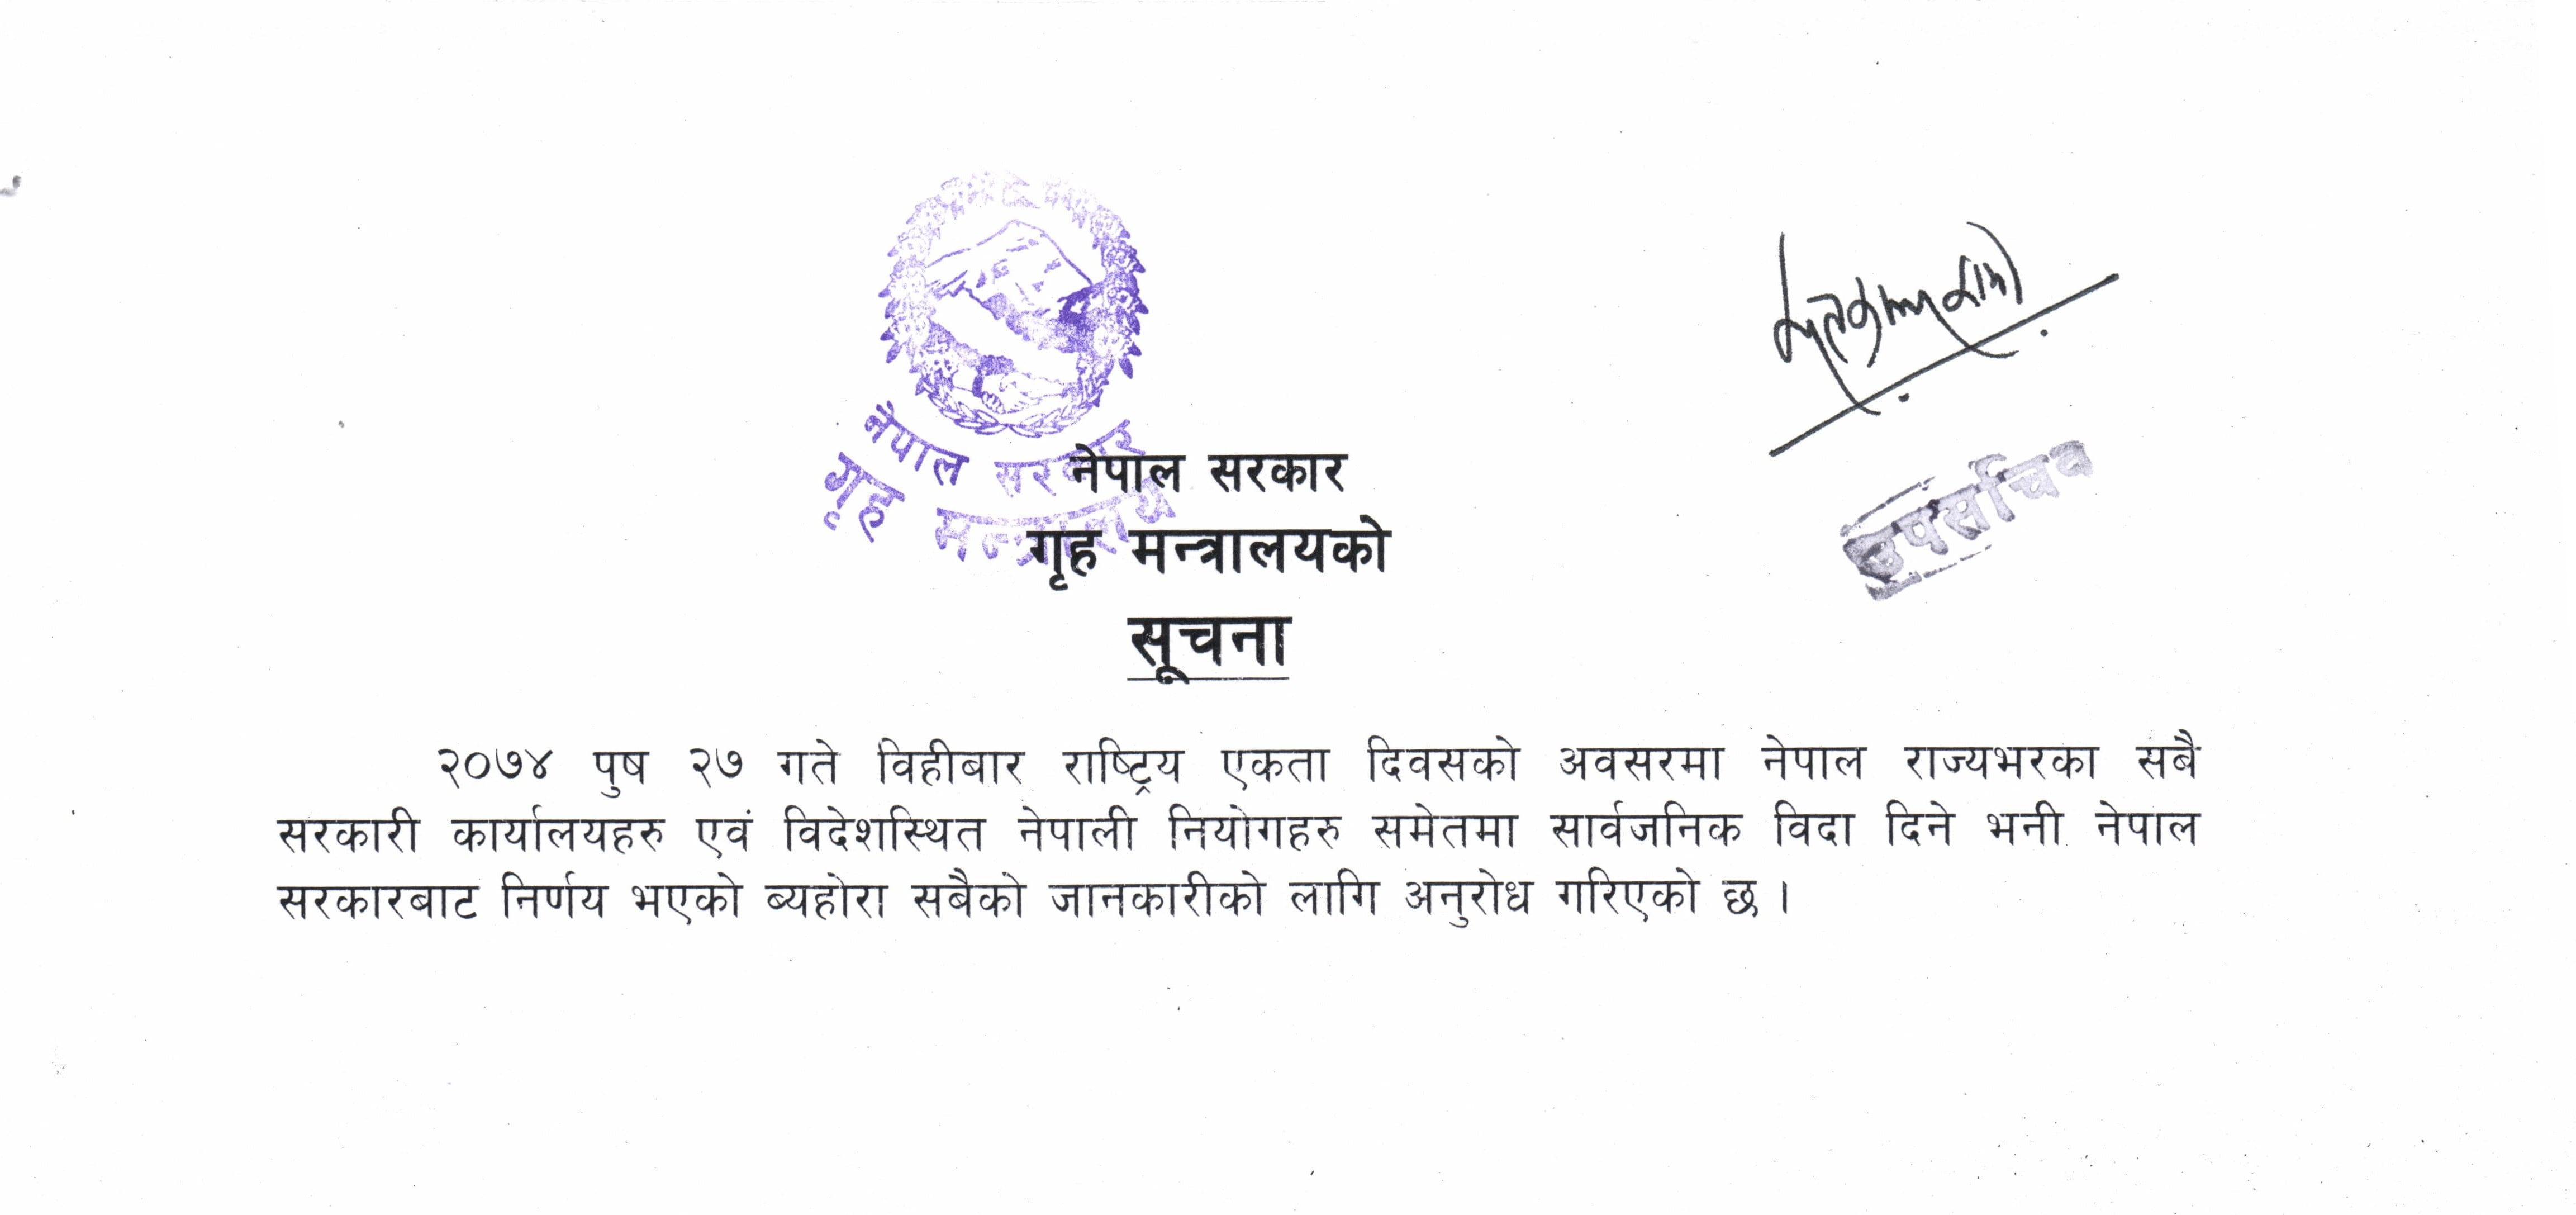 नेपाल सरकार
गृह मन्त्रालय
उपसचिव
नेपाल सरकार
गृह मन्त्रालयको
सूचना
२०७४ पुष २७ गते विहीबार राष्ट्रिय एकता दिवसको अवसरमा नेपाल राज्यभरका सबै
सरकारी कार्यालयहरु एवं विदेशस्थित नेपाली नियोगहरु समेतमा सार्वजनिक विदा दिने भनी नेपाल
सरकारबाट निर्णय भएको ब्यहोरा सबैको जानकारीको लागि अनुरोध गरिएको छ ।